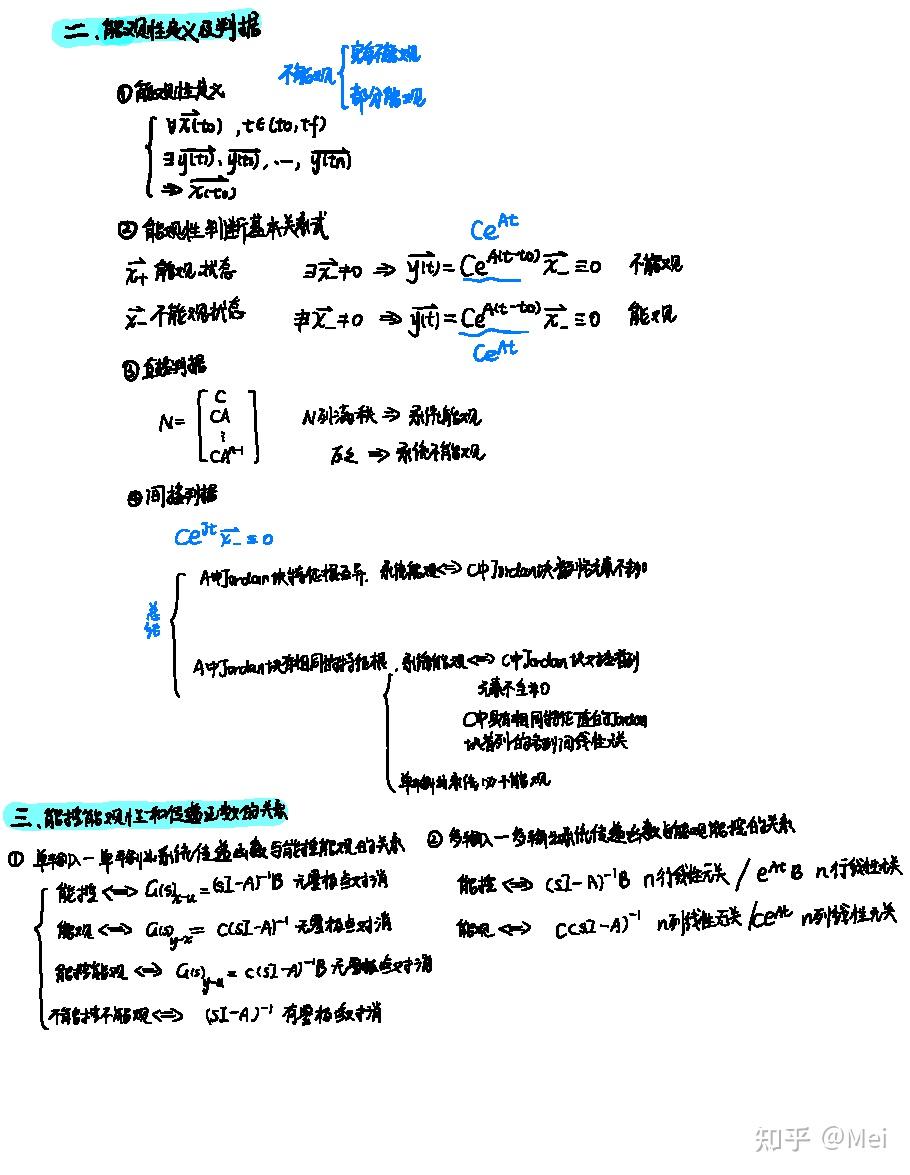 二、能观性定义及判据
不能观 { 完全不能观
部分能观
① 能观性定义
∀x⃗(t₀) , t∈(t₀, tf)
∃ y⃗(t₁), y⃗(t₂), ⋯, y⃗(tn)
⇒ x⃗(t₀)
② 能观性判断基本关系式
Ce^{At}
x⃗₊ 能观状态 ∃x⃗₋≠0 ⇒ y⃗(t)=Ce^{A(t-t₀)}x⃗₋≡0 不能观
x⃗₋ 不能观状态 ∄x⃗₋≠0 ⇒ y⃗(t)=Ce^{A(t-t₀)}x⃗₋≡0 能观
Ce^{At}
③ 直接判据
N= [ C
CA
⋮
CA^{n-1} ]
N列满秩 ⇒ 系统能观
反之 ⇒ 系统不能观
④ 间接判据
Ce^{Jt}x⃗₋≡0
总结
A中Jordan块特征根互异, 系统能观⇔C中Jordan块首列元素不全为0
A中Jordan块有相同的特征根, 系统能观⇔C中Jordan块对应首列
元素不全为0
C中具有相同特征值的Jordan
块首列的各列间线性无关
单输出系统必不能观
三、能控能观性和传递函数的关系
① 单输入-单输出系统传递函数与能控能观的关系
能控⇔G(s)_{x-u}=(sI-A)⁻¹B 无零极点对消
能观⇔G(s)_{y-x}= C(sI-A)⁻¹ 无零极点对消
能控能观⇔G(s)_{y-u}=C(sI-A)⁻¹B 无零极点对消
不能控不能观⇔(sI-A)⁻¹ 有零极点对消
② 多输入-多输出系统传递函数与能观能控的关系
能控⇔(sI-A)⁻¹B n行线性无关 / e^{At}B n行线性无关
能观⇔C(sI-A)⁻¹ n列线性无关 / Ce^{At} n列线性无关
知乎 @Mei